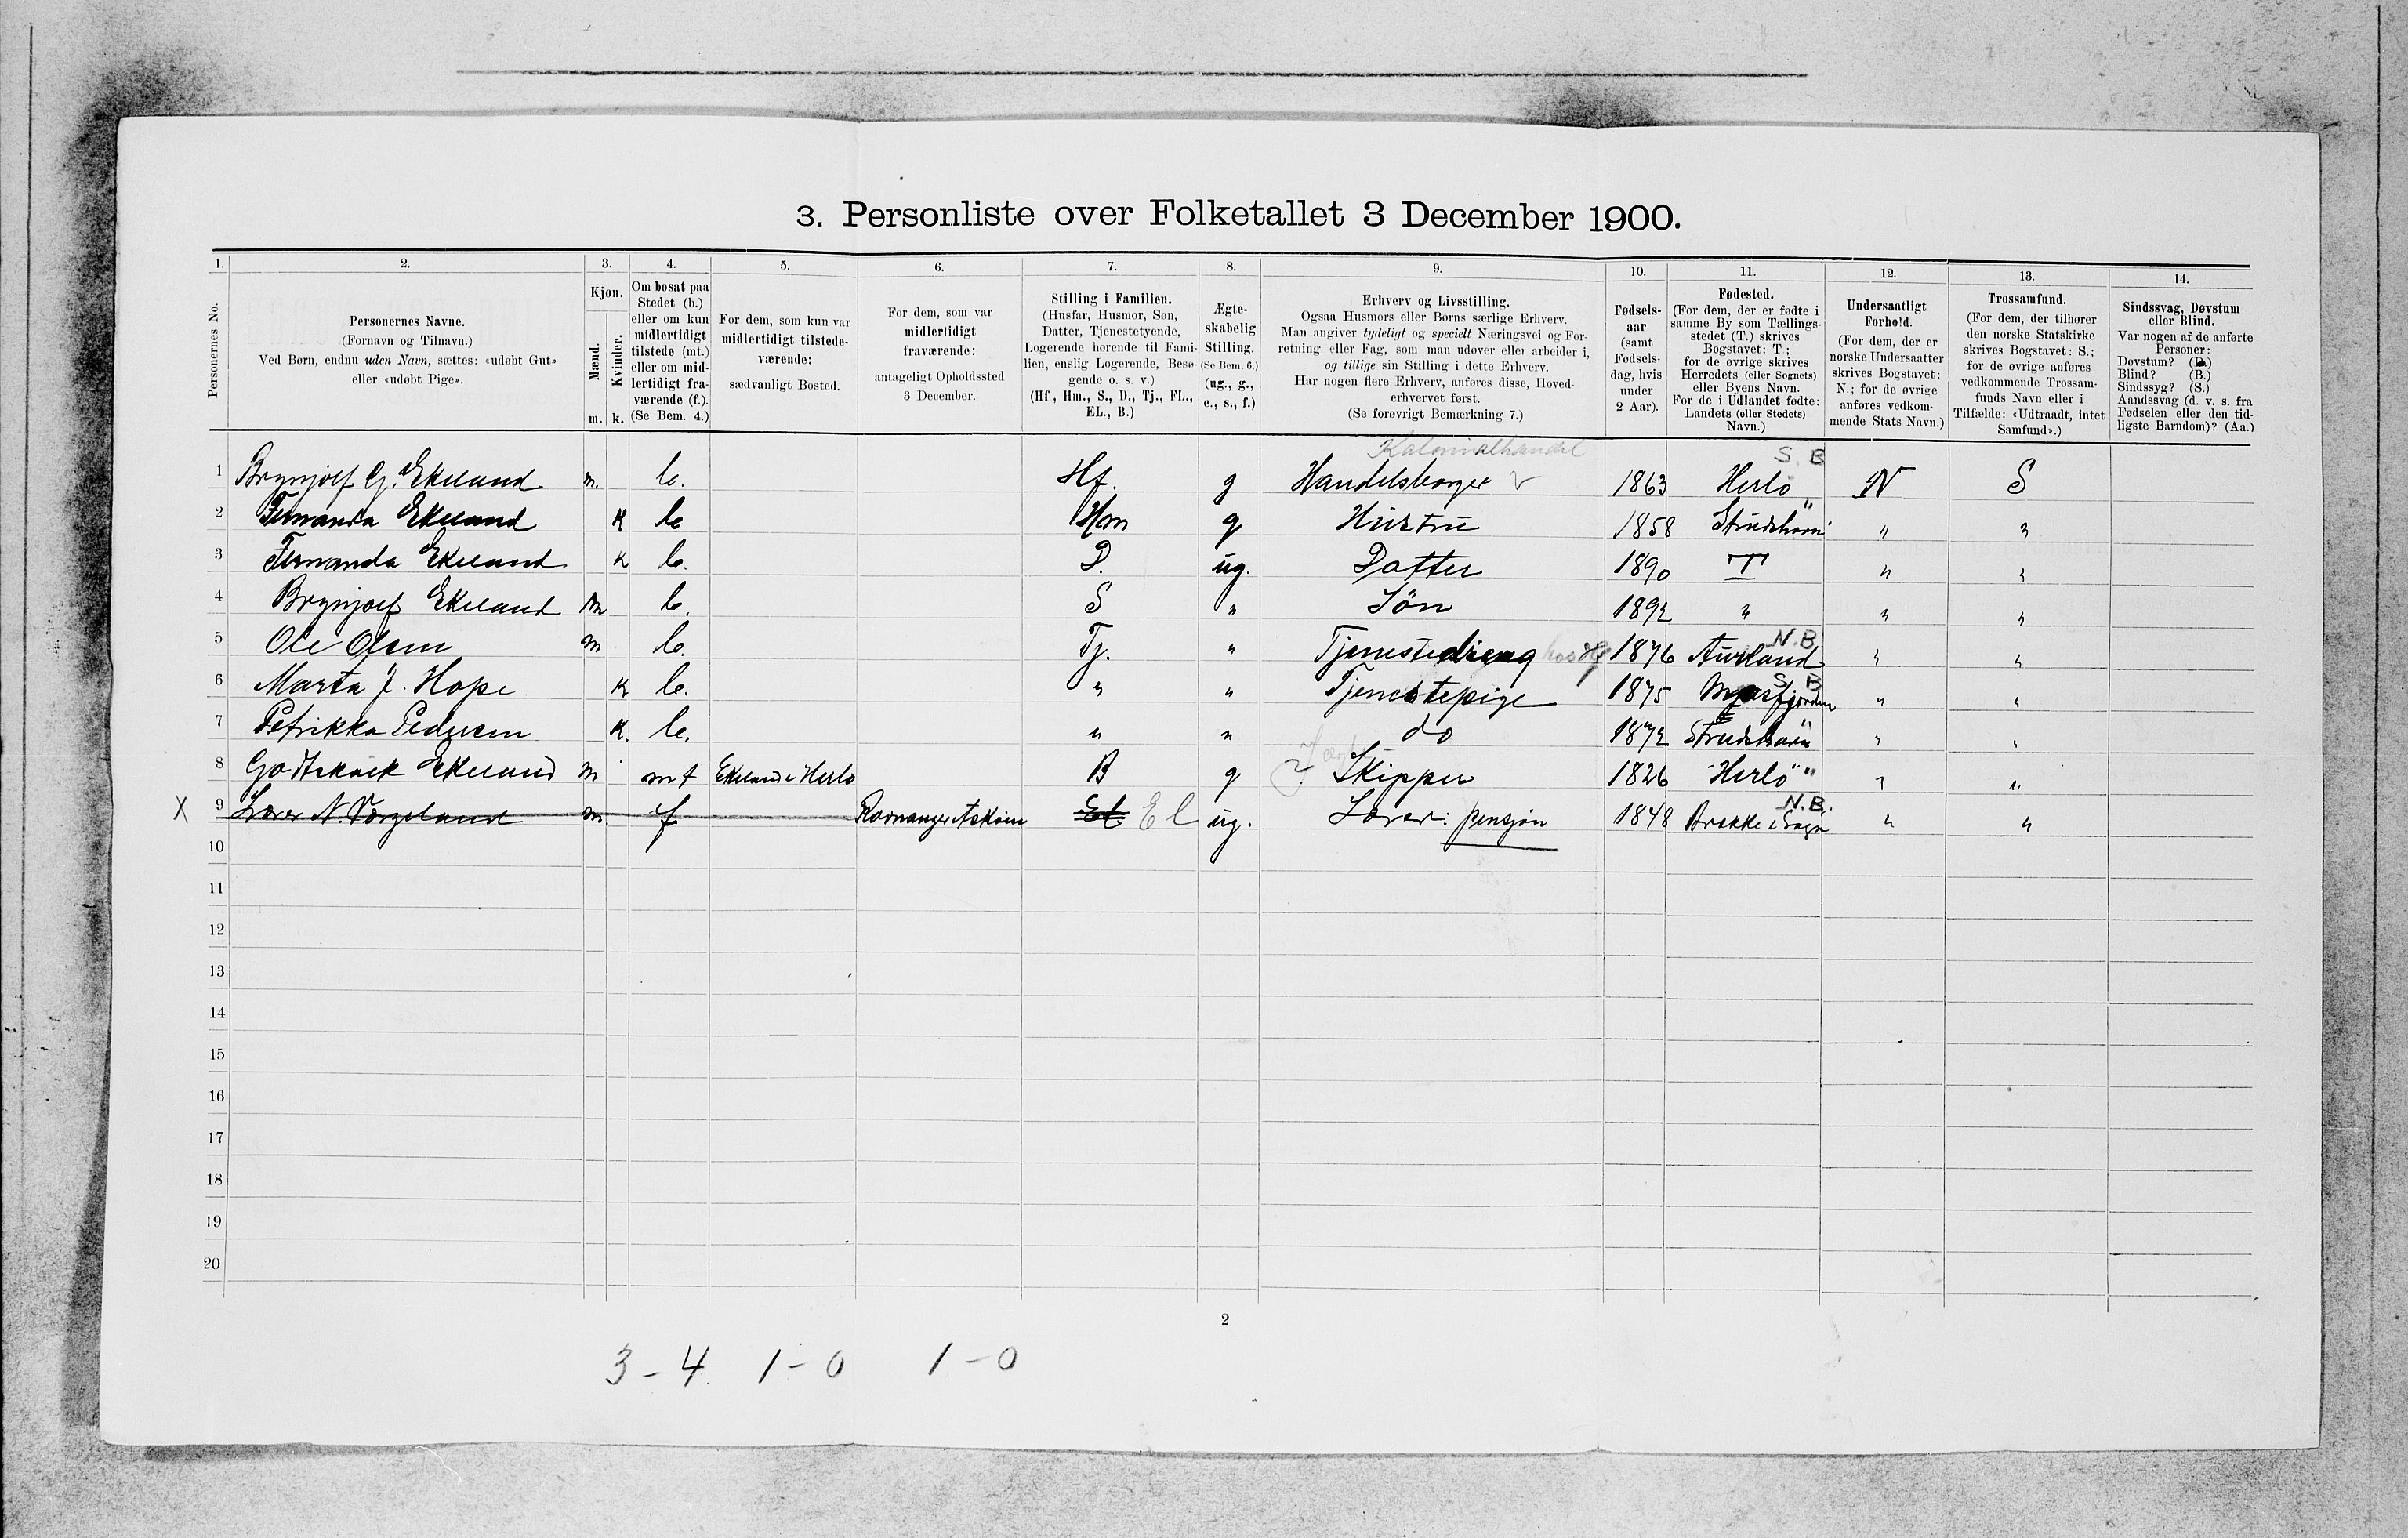 3. Personliste over Folketallet 3 December 1900.
1. 2. 3. 4. 5. 6. 7. 8. 9. 10. 11. 12. 13. 14.
Personernes No.
Personernes Navne.
(Fornavn og Tilnavn.)
Ved Børn, endnu uden Navn, sættes: «udøbt Gut»
eller «udøbt Pige».
Kjøn.
Mænd.
Kvinder.
m. k.
Om bosat paa
Stedet (b.)
eller om kun
midlertidigt
tilstede (mt.)
eller om mid-
lertidigt fra-
værende (f.).
(Se Bem. 4.)
For dem, som kun var
midlertidigt tilstede-
værende:
sædvanligt Bosted.
For dem, som var
midlertidigt
fraværende:
antageligt Opholdssted
3 December.
Stilling i Familien.
(Husfar, Husmor, Søn,
Datter, Tjenestetyende,
Logerende hørende til Fami-
lien, enslig Logerende, Besø-
gende o. s. v.)
(Hf, Hm., S., D., Tj., FL.,
EL., B.)
Ægte-
skabelig
Stilling.
(Se Bem. 6.)
(ug., g.,
e., s., f.)
Erhverv og Livsstilling.
Ogsaa Husmors eller Børns særlige Erhverv.
Man angiver tydeligt og specielt Næringsvei og For-
retning eller Fag, som man udøver eller arbeider i,
og tillige sin Stilling i dette Erhverv.
Har nogen flere Erhverv, anføres disse, Hoved-
erhvervet først.
(Se forøvrigt Bemærkning 7.)
Fødsels-
aar
(samt
Fødsels-
dag, hvis
under
2 Aar).
Fødested.
(For dem, der er fødte i
samme By som Tællings-
stedet (T.) skrives
Bogstavet: T;
for de øvrige skrives
Herredets (eller Sognets)
eller Byens Navn.
For de i Udlandet fødte:
Landets (eller Stedets)
Navn.)
Undersaatligt
Forhold.
(For dem, der er
norske Undersaatter
skrives Bogstavet:
N.; for de øvrige
anføres vedkom-
mende Stats Navn.)
Trossamfund.
(For dem, der tilhører
den norske Statskirke
skrives Bogstavet: S.;
for de øvrige anføres
vedkommende Trossam-
funds Navn eller i
Tilfælde: «Udtraadt, intet
Samfund».)
Sindssvag, Døvstum
eller Blind.
Var nogen af de anførte
Personer:
Døvstum? (D.)
Blind? (B.)
Sindssyg? (S.)
Aandssvag (d. v. s. fra
Fødselen eller den tid-
ligste Barndom)? (Aa.)
Kolonialhandel S. B
1 Brynjolf G. Ekeland m. b. Hf. g Handelsborger v 1863 Herlö N S
2 Fernanda Ekeland K b Hm g Hustru 1858 Strudshavn " "
3 Fernanda Ekeland K b. D. ug. Datter 1890 T " "
4 Brynjolf Ekeland m b. S " Sön 1892 " " "
5 Ole Olsen m b. Tj. " Tjenestedreng hos Hf 1876 Aurland N.B. " "
6 Marta J. Hope K b. " " Tjenestepige 1875 S. B " "
7 Petrikka Pedersen K. b. " " do 1872 Strudshavn " "
8 Godtskalk Ekeland m mt Ekeland i Herlö B g ? Skipper 1826 Herlö " " "
X 9 Lærer N. m. f Ravnanger Askøen El El ug. Lærer. pensjon 1848 Brekke i Sogn N.B. " "
10
11
12
13
14
15
16
17
18
19
20
2
3-4 1-0 1-0